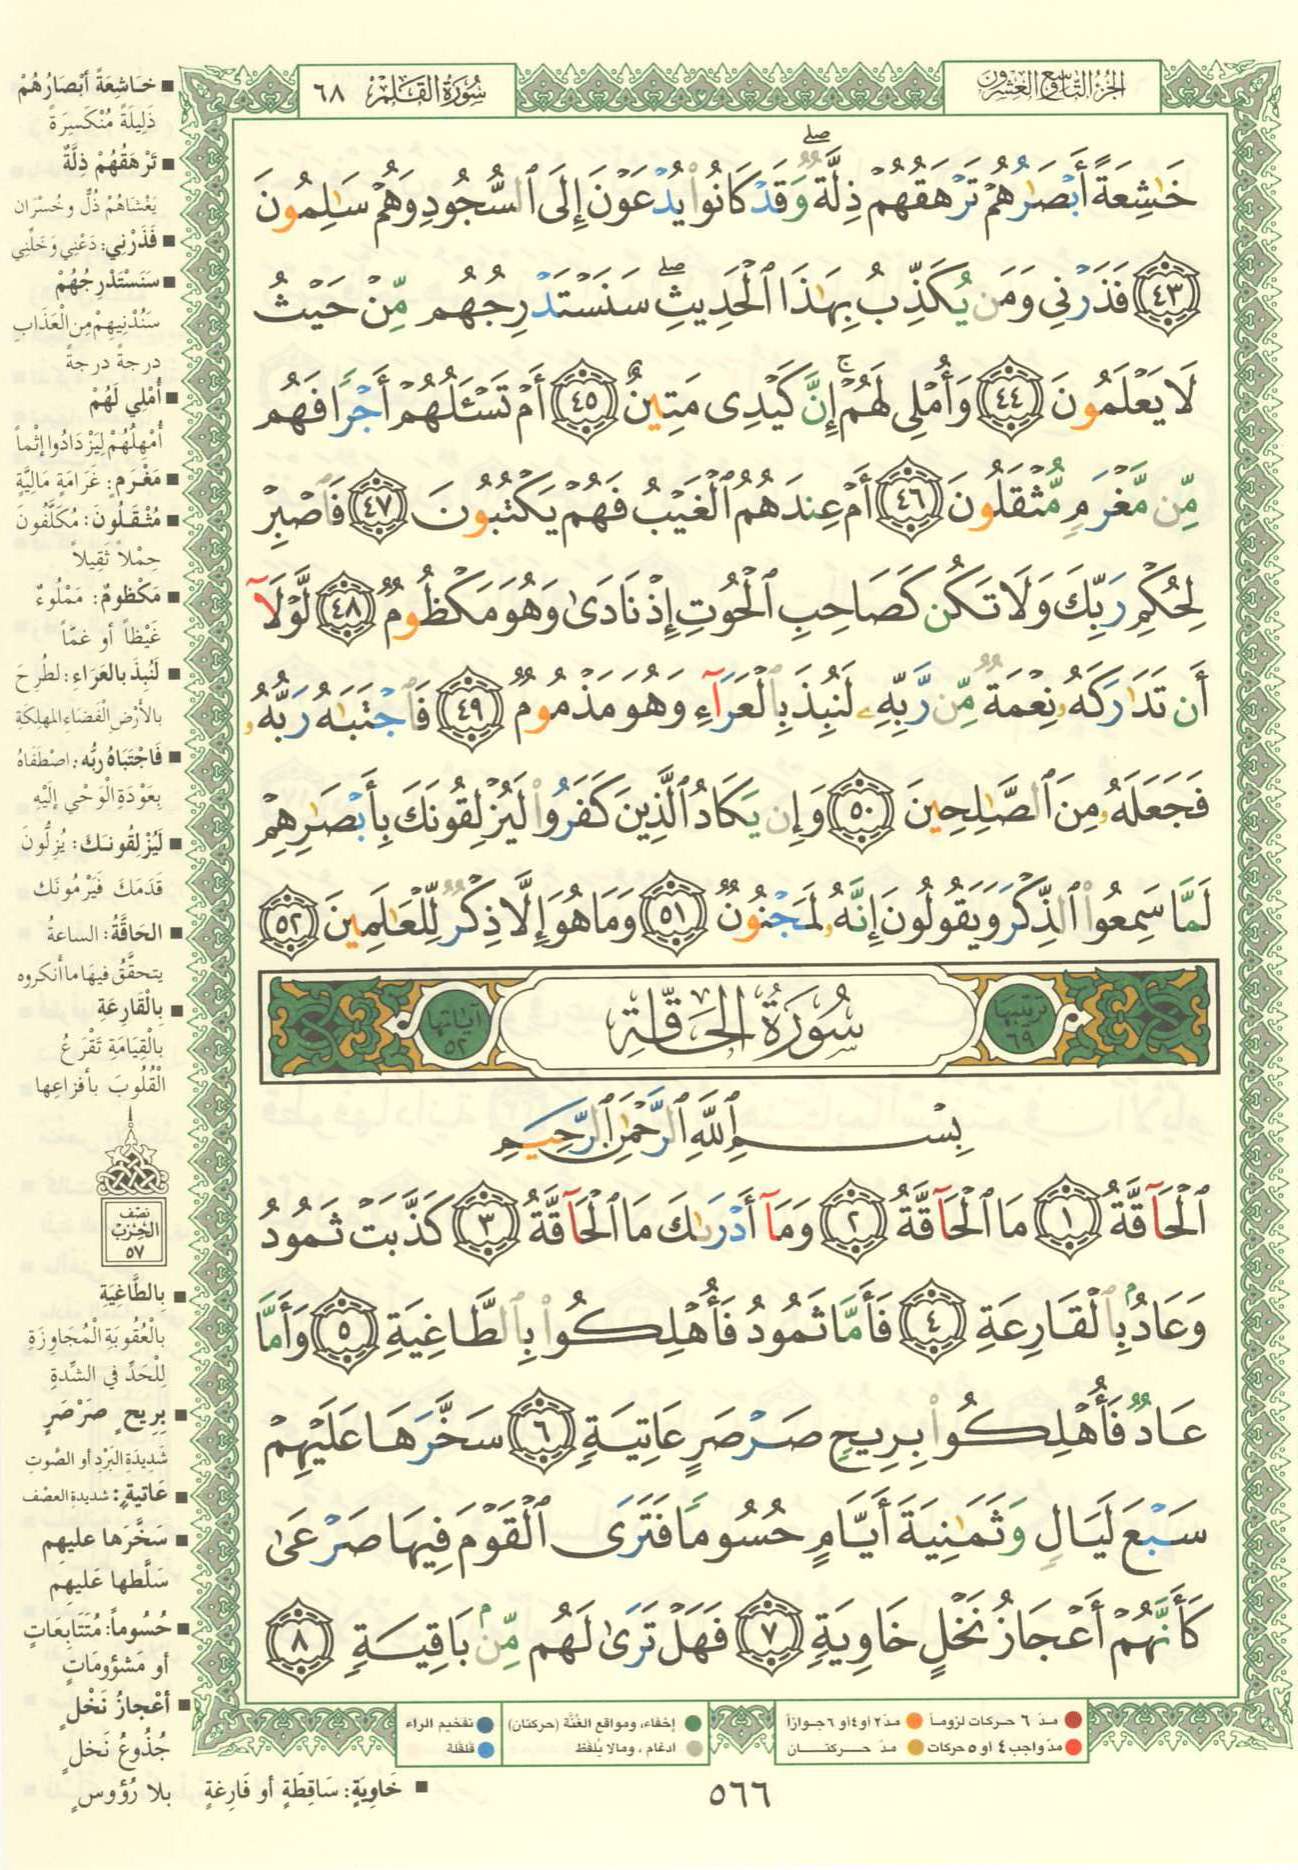 الجزء التاسع والعشرون
سُورَةُ القَلَمِ ٦٨
خَٰشِعَةً أَبْصَٰرُهُمْ تَرْهَقُهُمْ ذِلَّةٌ ۖ وَقَدْ كَانُوا۟ يُدْعَوْنَ إِلَى ٱلسُّجُودِ وَهُمْ سَٰلِمُونَ
﴿٤٣﴾ فَذَرْنِى وَمَن يُكَذِّبُ بِهَٰذَا ٱلْحَدِيثِ ۖ سَنَسْتَدْرِجُهُم مِّنْ حَيْثُ
لَا يَعْلَمُونَ ﴿٤٤﴾ وَأُمْلِى لَهُمْ ۚ إِنَّ كَيْدِى مَتِينٌ ﴿٤٥﴾ أَمْ تَسْـَٔلُهُمْ أَجْرًا فَهُم
مِّن مَّغْرَمٍ مُّثْقَلُونَ ﴿٤٦﴾ أَمْ عِندَهُمُ ٱلْغَيْبُ فَهُمْ يَكْتُبُونَ ﴿٤٧﴾ فَٱصْبِرْ
لِحُكْمِ رَبِّكَ وَلَا تَكُن كَصَاحِبِ ٱلْحُوتِ إِذْ نَادَىٰ وَهُوَ مَكْظُومٌ ﴿٤٨﴾ لَّوْلَآ
أَن تَدَٰرَكَهُۥ نِعْمَةٌ مِّن رَّبِّهِۦ لَنُبِذَ بِٱلْعَرَآءِ وَهُوَ مَذْمُومٌ ﴿٤٩﴾ فَٱجْتَبَٰهُ رَبُّهُۥ
فَجَعَلَهُۥ مِنَ ٱلصَّٰلِحِينَ ﴿٥٠﴾ وَإِن يَكَادُ ٱلَّذِينَ كَفَرُوا۟ لَيُزْلِقُونَكَ بِأَبْصَٰرِهِمْ
لَمَّا سَمِعُوا۟ ٱلذِّكْرَ وَيَقُولُونَ إِنَّهُۥ لَمَجْنُونٌ ﴿٥١﴾ وَمَا هُوَ إِلَّا ذِكْرٌ لِّلْعَٰلَمِينَ ﴿٥٢﴾
ترتيبها ٦٩ سُورَةُ الحَاقَّةِ آياتها ٥٢
بِسْمِ ٱللَّهِ ٱلرَّحْمَٰنِ ٱلرَّحِيمِ
ٱلْحَآقَّةُ ﴿١﴾ مَا ٱلْحَآقَّةُ ﴿٢﴾ وَمَآ أَدْرَىٰكَ مَا ٱلْحَآقَّةُ ﴿٣﴾ كَذَّبَتْ ثَمُودُ
وَعَادٌۢ بِٱلْقَارِعَةِ ﴿٤﴾ فَأَمَّا ثَمُودُ فَأُهْلِكُوا۟ بِٱلطَّاغِيَةِ ﴿٥﴾ وَأَمَّا
عَادٌ فَأُهْلِكُوا۟ بِرِيحٍ صَرْصَرٍ عَاتِيَةٍ ﴿٦﴾ سَخَّرَهَا عَلَيْهِمْ
سَبْعَ لَيَالٍ وَثَمَٰنِيَةَ أَيَّامٍ حُسُومًا فَتَرَى ٱلْقَوْمَ فِيهَا صَرْعَىٰ
كَأَنَّهُمْ أَعْجَازُ نَخْلٍ خَاوِيَةٍ ﴿٧﴾ فَهَلْ تَرَىٰ لَهُم مِّنۢ بَاقِيَةٍ ﴿٨﴾
■ خَاشِعَةً أَبْصَارُهُمْ
ذَلِيلَةً مُنْكَسِرَةً
■ تَرْهَقُهُمْ ذِلَّةٌ
يَغْشَاهُمْ ذُلٌّ وخُسْرَان
■ فَذَرْنِي: دَعْنِي وَخَلِّنِي
■ سَنَسْتَدْرِجُهُمْ
سَنُدْنِيهِمْ مِن الْعَذَابِ
درجةً درجةً
■ أُمْلِي لَهُمْ
أُمْهِلُهُمْ لِيَزْدَادُوا إثْماً
■ مَغْرَمٍ: غَرَامَةٍ مَالِيَّةٍ
■ مُثْقَلُونَ: مُكَلَّفُونَ
حِمْلاً ثَقِيلاً
■ مَكْظُومٌ: مَمْلُوءٌ
غَيْظاً أو غمّاً
■ لَنُبِذَ بالعَرَاءِ: لَطُرِحَ
بالأَرْضِ الْفَضَاءِ المهلِكَةِ
■ فَاجْتَبَاهُ ربُّه: اصْطَفَاهُ
بِعَوْدَةِ الْوَحْيِ إلَيْهِ
■ لَيُزْلِقُونَكَ: يُزِلُّونَ
قَدَمَكَ فَيَرْمُونَك
■ الحَاقَّةُ: الساعةُ
يتحقَّقُ فيهَا ما أَنكروه
■ بِالْقَارِعَةِ
بالْقِيَامَةِ تَقْرَعُ
الْقُلُوبَ بأفزاعِها
نصف
الحزب
٥٧
■ بِالطَّاغِيَةِ
بالْعُقُوبَةِ الْمُجَاوِزَةِ
لِلْحَدِّ في الشِّدةِ
■ بِرِيحٍ صَرْصَرٍ
شَدِيدَةِ البَرْدِ أو الصَّوتِ
■ عَاتِيةٍ: شديدةِ العصْف
■ سَخَّرَها عليهِم
سَلَّطها عَليهِم
■ حُسُوماً: مُتَتَابِعَاتٍ
أو مَشؤومَاتٍ
■ أعْجازُ نَخْلٍ
جُذُوعُ نَخلٍ
بلا رُؤوسٍ
■ خَاوِيَةٍ: سَاقِطَةٍ أو فَارِغةٍ
مدّ ٦ حركات لزوماً
مدّ ٢ أو ٤ أو ٦ جوازاً
إخفاء، ومواقع الغُنَّة (حركتان)
تفخيم الراء
مدّ واجب ٤ أو ٥ حركات
مدّ حركتان
ادغام، ومالا يُلفَظ
قلقلة
٥٦٦